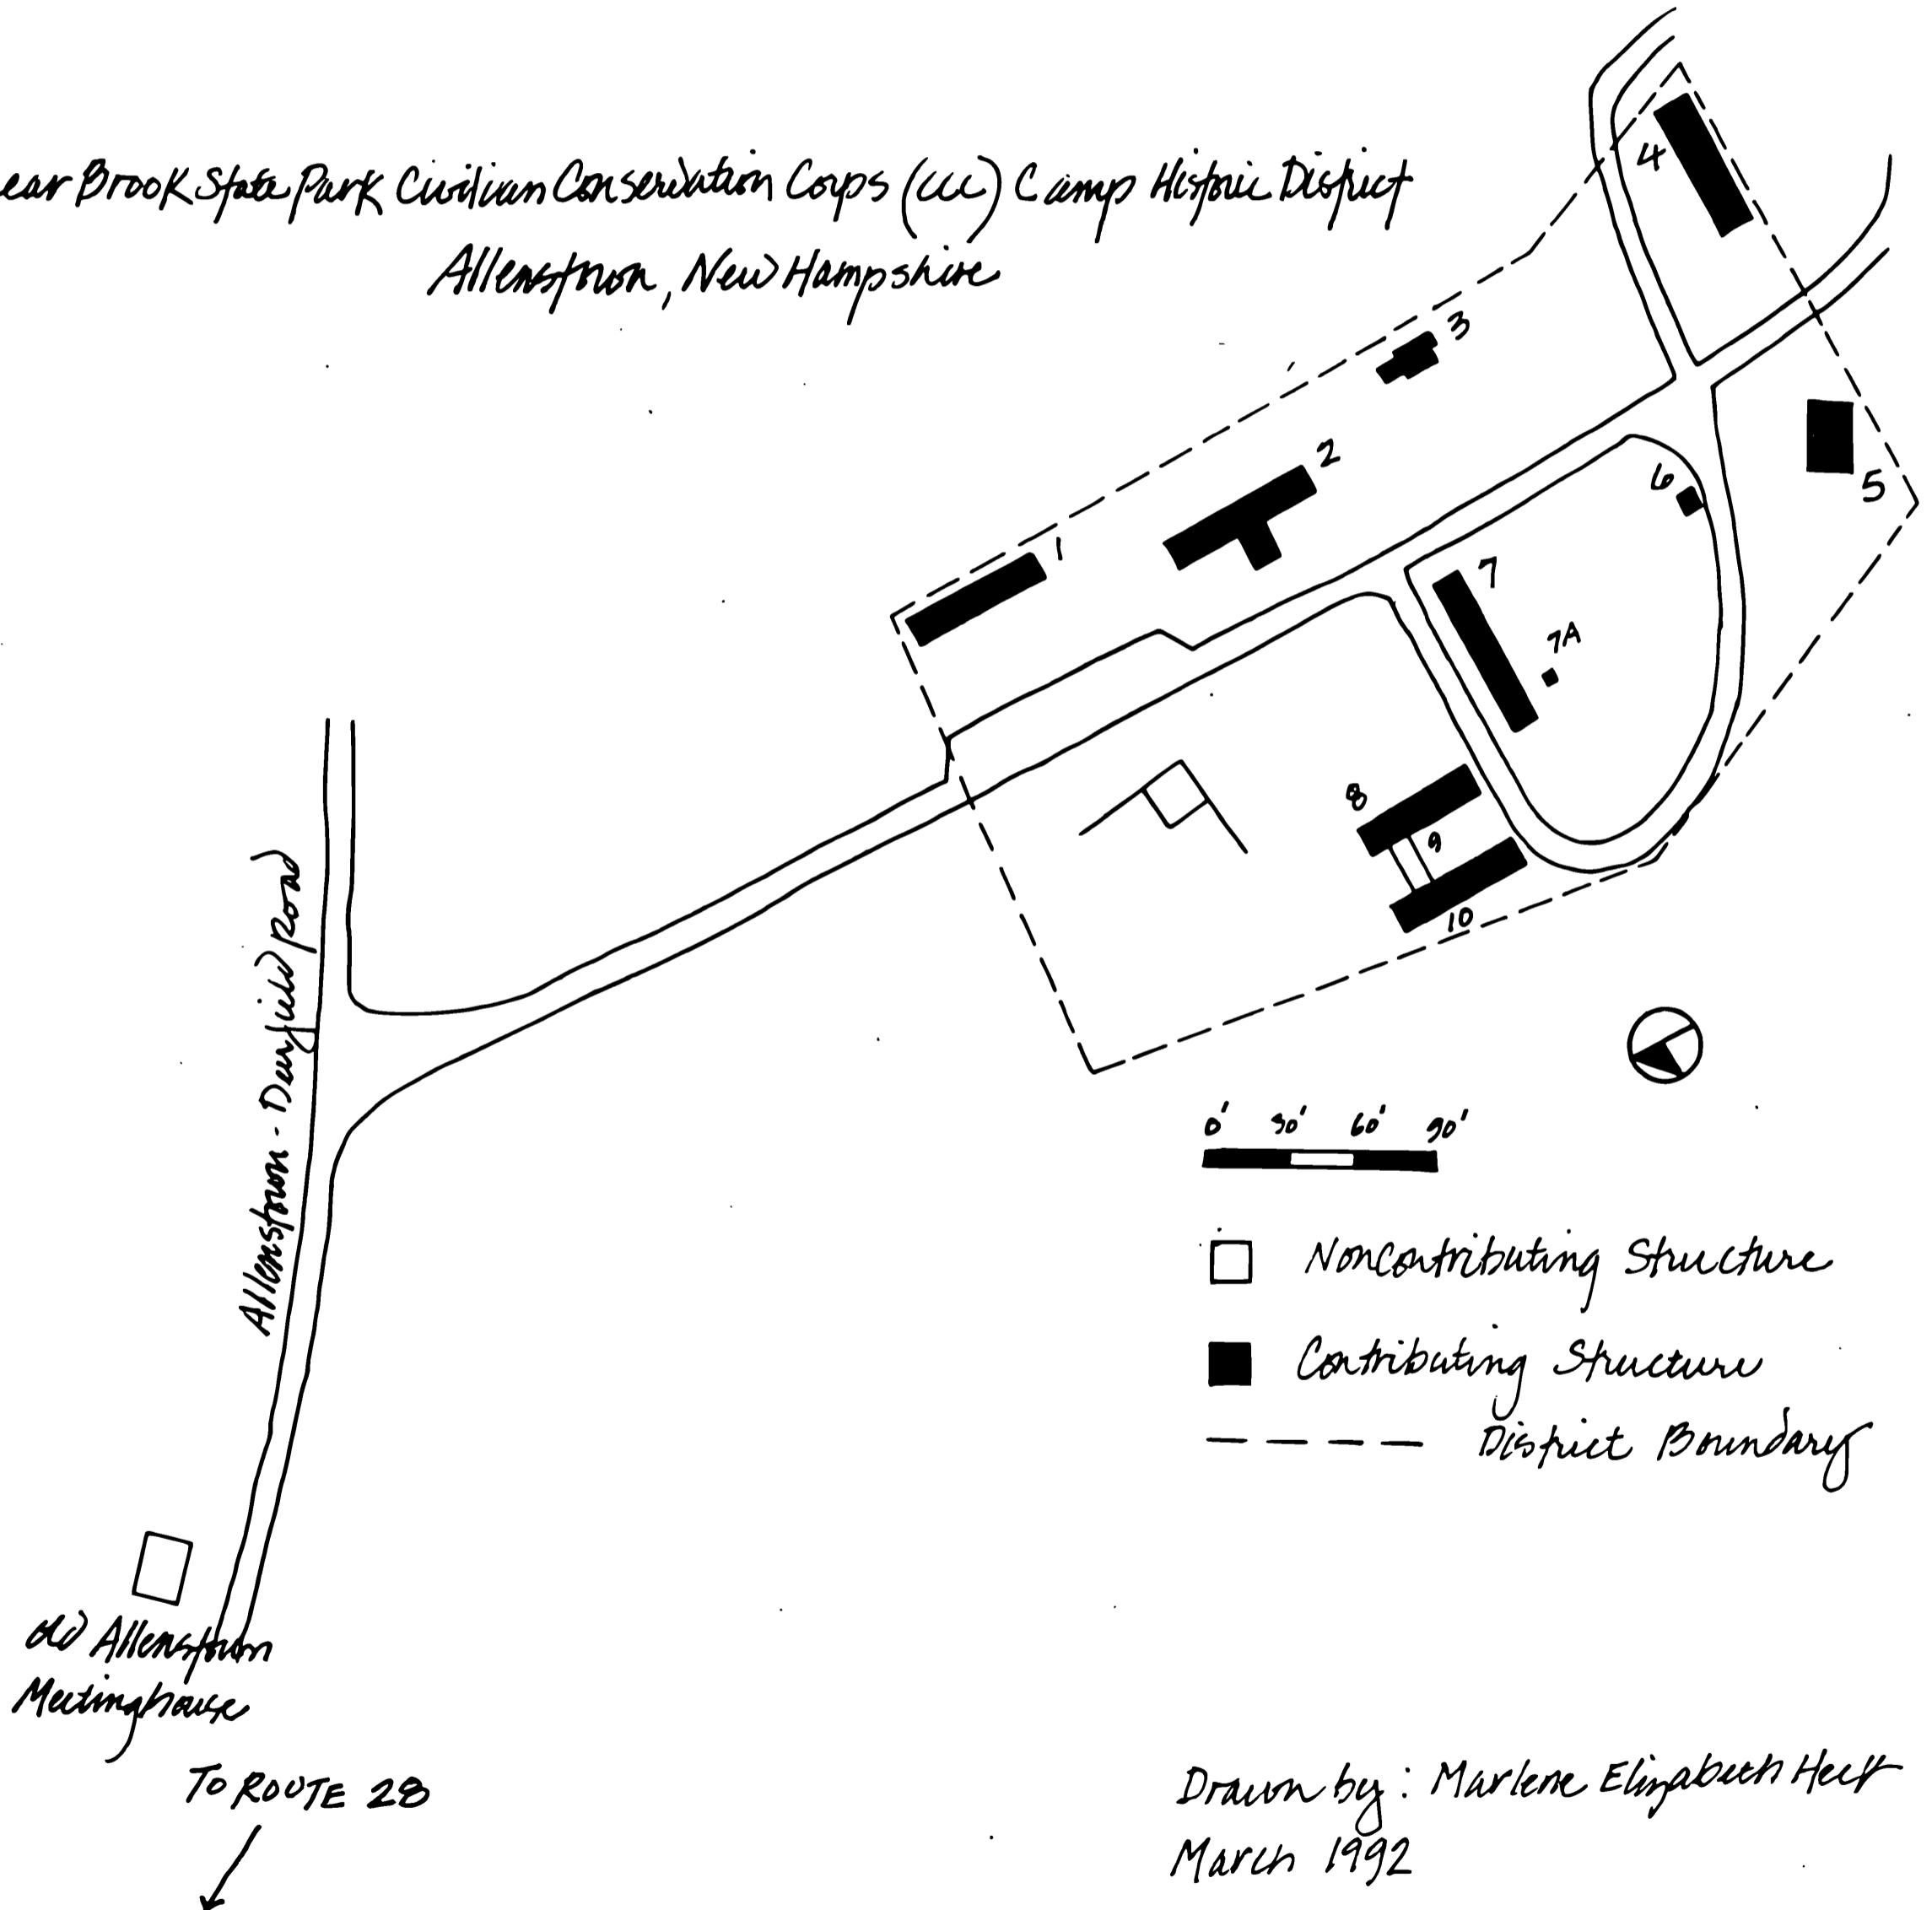 ear Brook State Park Civilian Conservation Corps (CCC) Camp Historic District
Allenstown, New Hampshire
4
3
2
1
5
6
7
7A
8
9
10
Allenstown - Deerfield Road
0' 30' 60' 90'
NonContributing Structure
Contributing Structure
District Boundary
Old Allenstown
Meetinghouse
TO ROUTE 28
Drawn by: Marlene Elizabeth
March 1992